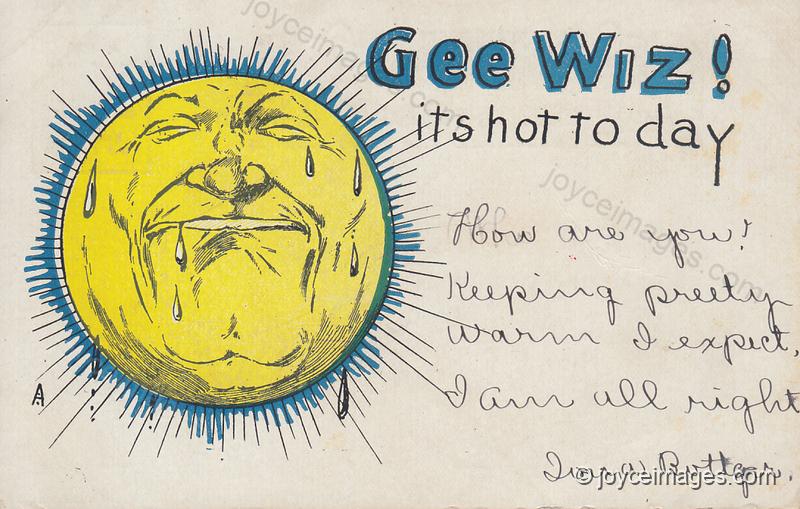 Gee Wiz!
its hot to day
How are you?
Keeping pretty
warm I expect,
I am all right
A
joyceimages.com
joyceimages.com
© joyceimages.com